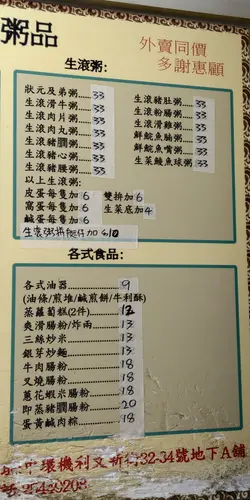 粥品
外賣同價
多謝惠顧
生滾粥:
狀元及弟粥......33
生滾滑牛粥......33
生滾肉片粥......33
生滾肉丸粥......33
生滾豬膶粥......33
生滾豬心粥......33
生滾豬腰粥......33
生滾豬肚粥......33
生滾粉腸粥......33
生滾滑雞粥......33
鮮鯇魚腩粥......33
鮮鯇魚嘴粥......33
生菜鯪魚球粥...33
以上生滾粥:
皮蛋每隻加 6 雙拼加 6
窩蛋每隻加 6 生菜底加 4
鹹蛋每隻加 6
各式食品:
各式油器...............9
(油條/煎堆/鹹煎餅/牛利酥)
蒸蘿蔔糕(2件)......12
爽滑腸粉/炸兩......13
三絲炒米...............13
銀芽炒麵...............13
牛肉腸粉...............18
叉燒腸粉...............18
蔥花蝦米腸粉.........18
即蒸豬膶腸粉.........20
蛋黃鹹肉粽............18
中環機利文新街32-34號地下A舖